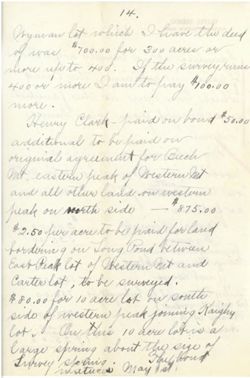 14.
Wyman lot which I have the deed
of was $700.00 for 300 acres or
more up to 400. If the survey runs
400 or more I am to pay $100.00
more.
Henry Clark - paid on bond $50.00
additional to be paid on
original agreement for Beech
Mt. eastern peak of Western Mt
and all other land on western
peak on north side — $875.00
$2.50 per acre to be paid for land
bordering on Long Pond between
East Peak lot of Western Mt and
Carter lot, to be surveyed.
$80.00 for 10 acre lot on south
side of western peak joining
lot. On this 10 acre lot is a
large spring about the size of
Survey spring. This bond
matures May 1st.